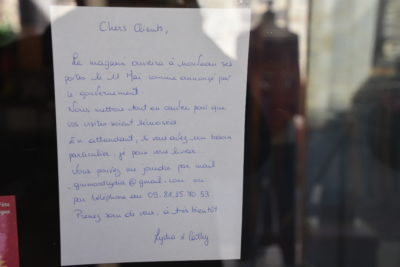 Chers Clients,
Le magasin ouvrira à nouveau ses
portes le 11 Mai comme annoncé par
le gouvernement.
Nous mettons tout en œuvre pour que
vos visites soient sécurisées.
En attendant, si vous avez un besoin
particulier, je peux vous livrer.
Vous pouvez me joindre par mail
@gmail.com ou
par téléphone au 09.81.25.70.53.
Prenez soin de vous, à très bientôt
Lydia & Cathy